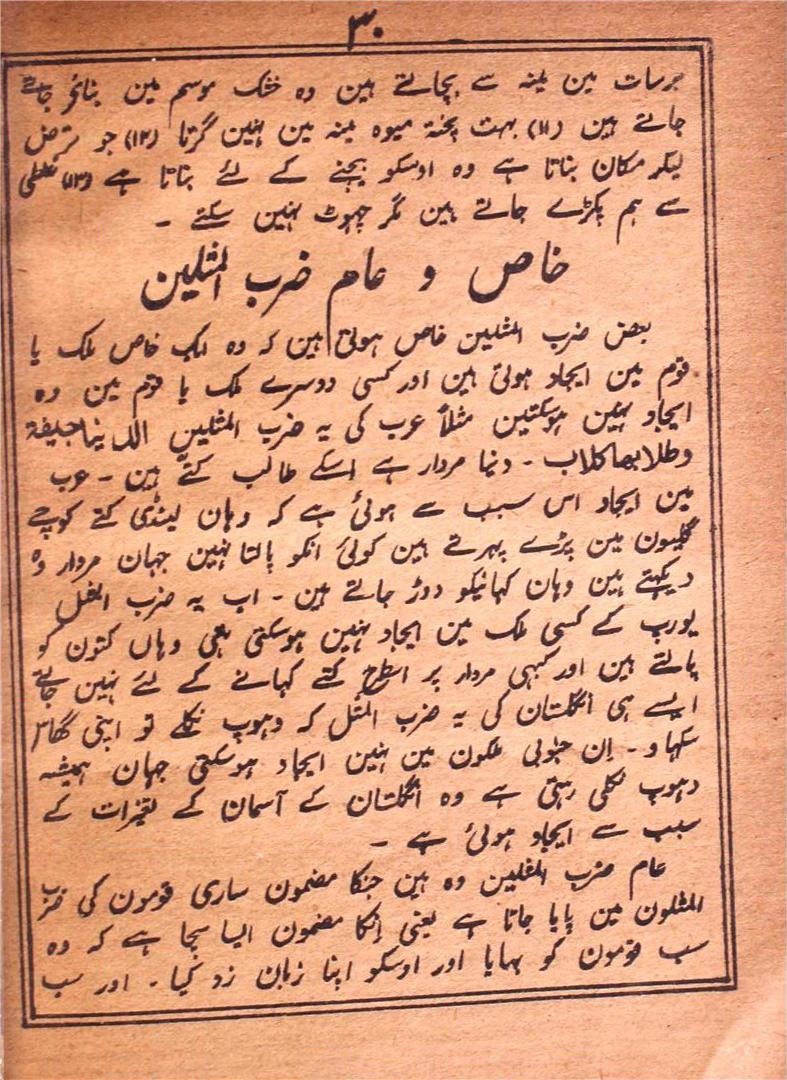 ۳۰
برسات مین مینہ سے بچاتے ہین وہ خشک موسم مین بنائر جاتے
جاتے ہین (۱۱) بہت پختہ میوہ مینہ مین نہین گرتا (۱۲) جو قرض
لیکر مکان بناتا ہے وہ اوسکو بیچنے کے لئے بناتا ہے (۱۳) غلطی
سے ہم پکڑے جاتے ہین مگر چہوٹ نہین سکتے ۔
خاص و عام ضرب المثلین
بعض ضرب المثلین خاص ہوتی ہین کہ وہ ایک خاص ملک یا
قوم مین ایجاد ہوتی ہین اور کسی دوسرے ملک یا قوم مین وہ
ایجاد نہین ہوسکتین مثلاً عرب کی یہ ضرب المثلین الدنیا جیفة
وطلابھا کلاب ۔ دنیا مردار ہے اسکے طالب کتے ہین ۔ عرب
مین ایجاد اس سبب سے ہوئی ہے کہ وہان لینڈی کتے کوچے
گلیون مین پڑے پہرتے ہین کوئی انکو پالتا نہین جہان مردار وہ
دیکہتے ہین وہان کہانیکو دوڑ جاتے ہین ۔ اب یہ ضرب المثل
یورپ کے کسی ملک مین ایجاد نہین ہوسکتی تھی وہاں کتون کو
پالتے ہین اور کبہی مردار پر اسطرح کتے کہانے کے لئے نہین جاتے
ایسے ہی انگلستان کی یہ ضرب المثل کہ دہوپ نکلے تو اپنی گھاس
سکہاو ۔ اِن جنوبی ملکون مین نہین ایجاد ہوسکتی جہان ہمیشہ
دہوپ نکلی رہتی ہے وہ انگلستان کے آسمان کے تغیرات کے
سبب سے ایجاد ہوئی ہے ۔
عام ضرب المثلین وہ ہین جنکا مضمون ساری قومون کی ضرب
المثلون مین پایا جاتا ہے یعنی اِنکا مضمون ایسا سچا ہے کہ وہ
سب قومون کو بہایا اور اوسکو اپنا زبان زد کیا ۔ اور سب